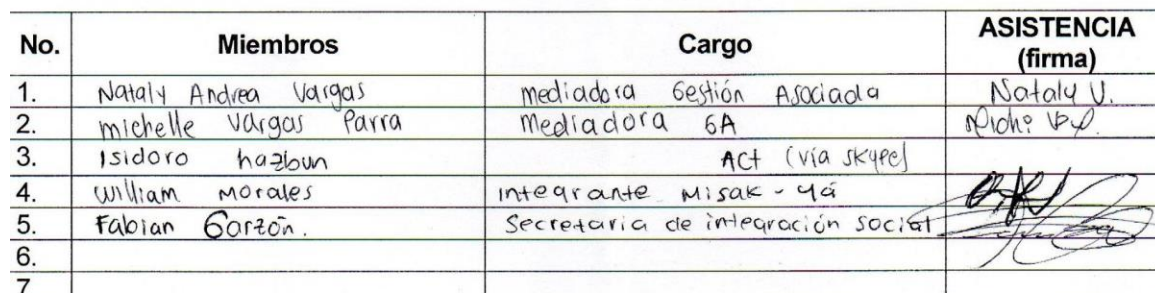 No. Miembros Cargo ASISTENCIA (firma)
1. Nataly Andrea Vargas mediadora Gestión Asociada Nataly V.
2. michelle Vargas Parra Mediadora GA
3. Isidoro hazbun Act (vía skype)
4. William Morales integrante Misak - yá
5. Fabian Garzón. Secretaria de integración social
6.
7